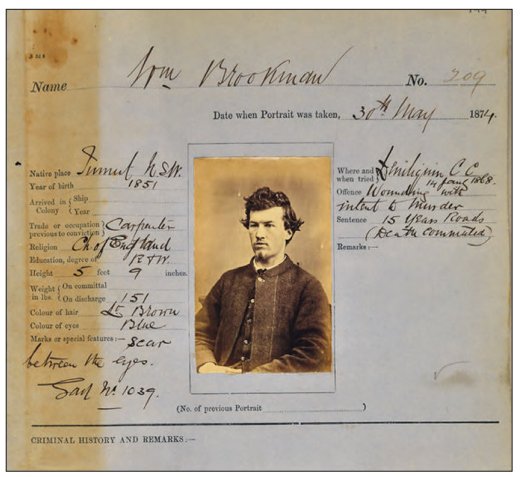 Name Wm Brookman No. 209
Date when Portrait was taken, 30th May 1874.
Native place Tumut N.S.W.
Year of birth 1851
Arrived in Colony { Ship
Year
Trade or occupation previous to conviction } Carpenter
Religion Ch of England
Education, degree of R & W.
Height 5 feet 9 inches.
Weight in lbs. { On committal
On discharge 151
Colour of hair Lt Brown
Colour of eyes Blue
Marks or special features:— Scar
between the eyes.
Gaol No. 1039.
Where and when tried } Deniliquin C C
14 Jany 1868.
Offence Wounding with
intent to Murder
Sentence 15 Years Roads
(Death commuted)
Remarks:—
(No. of previous Portrait )
CRIMINAL HISTORY AND REMARKS:—